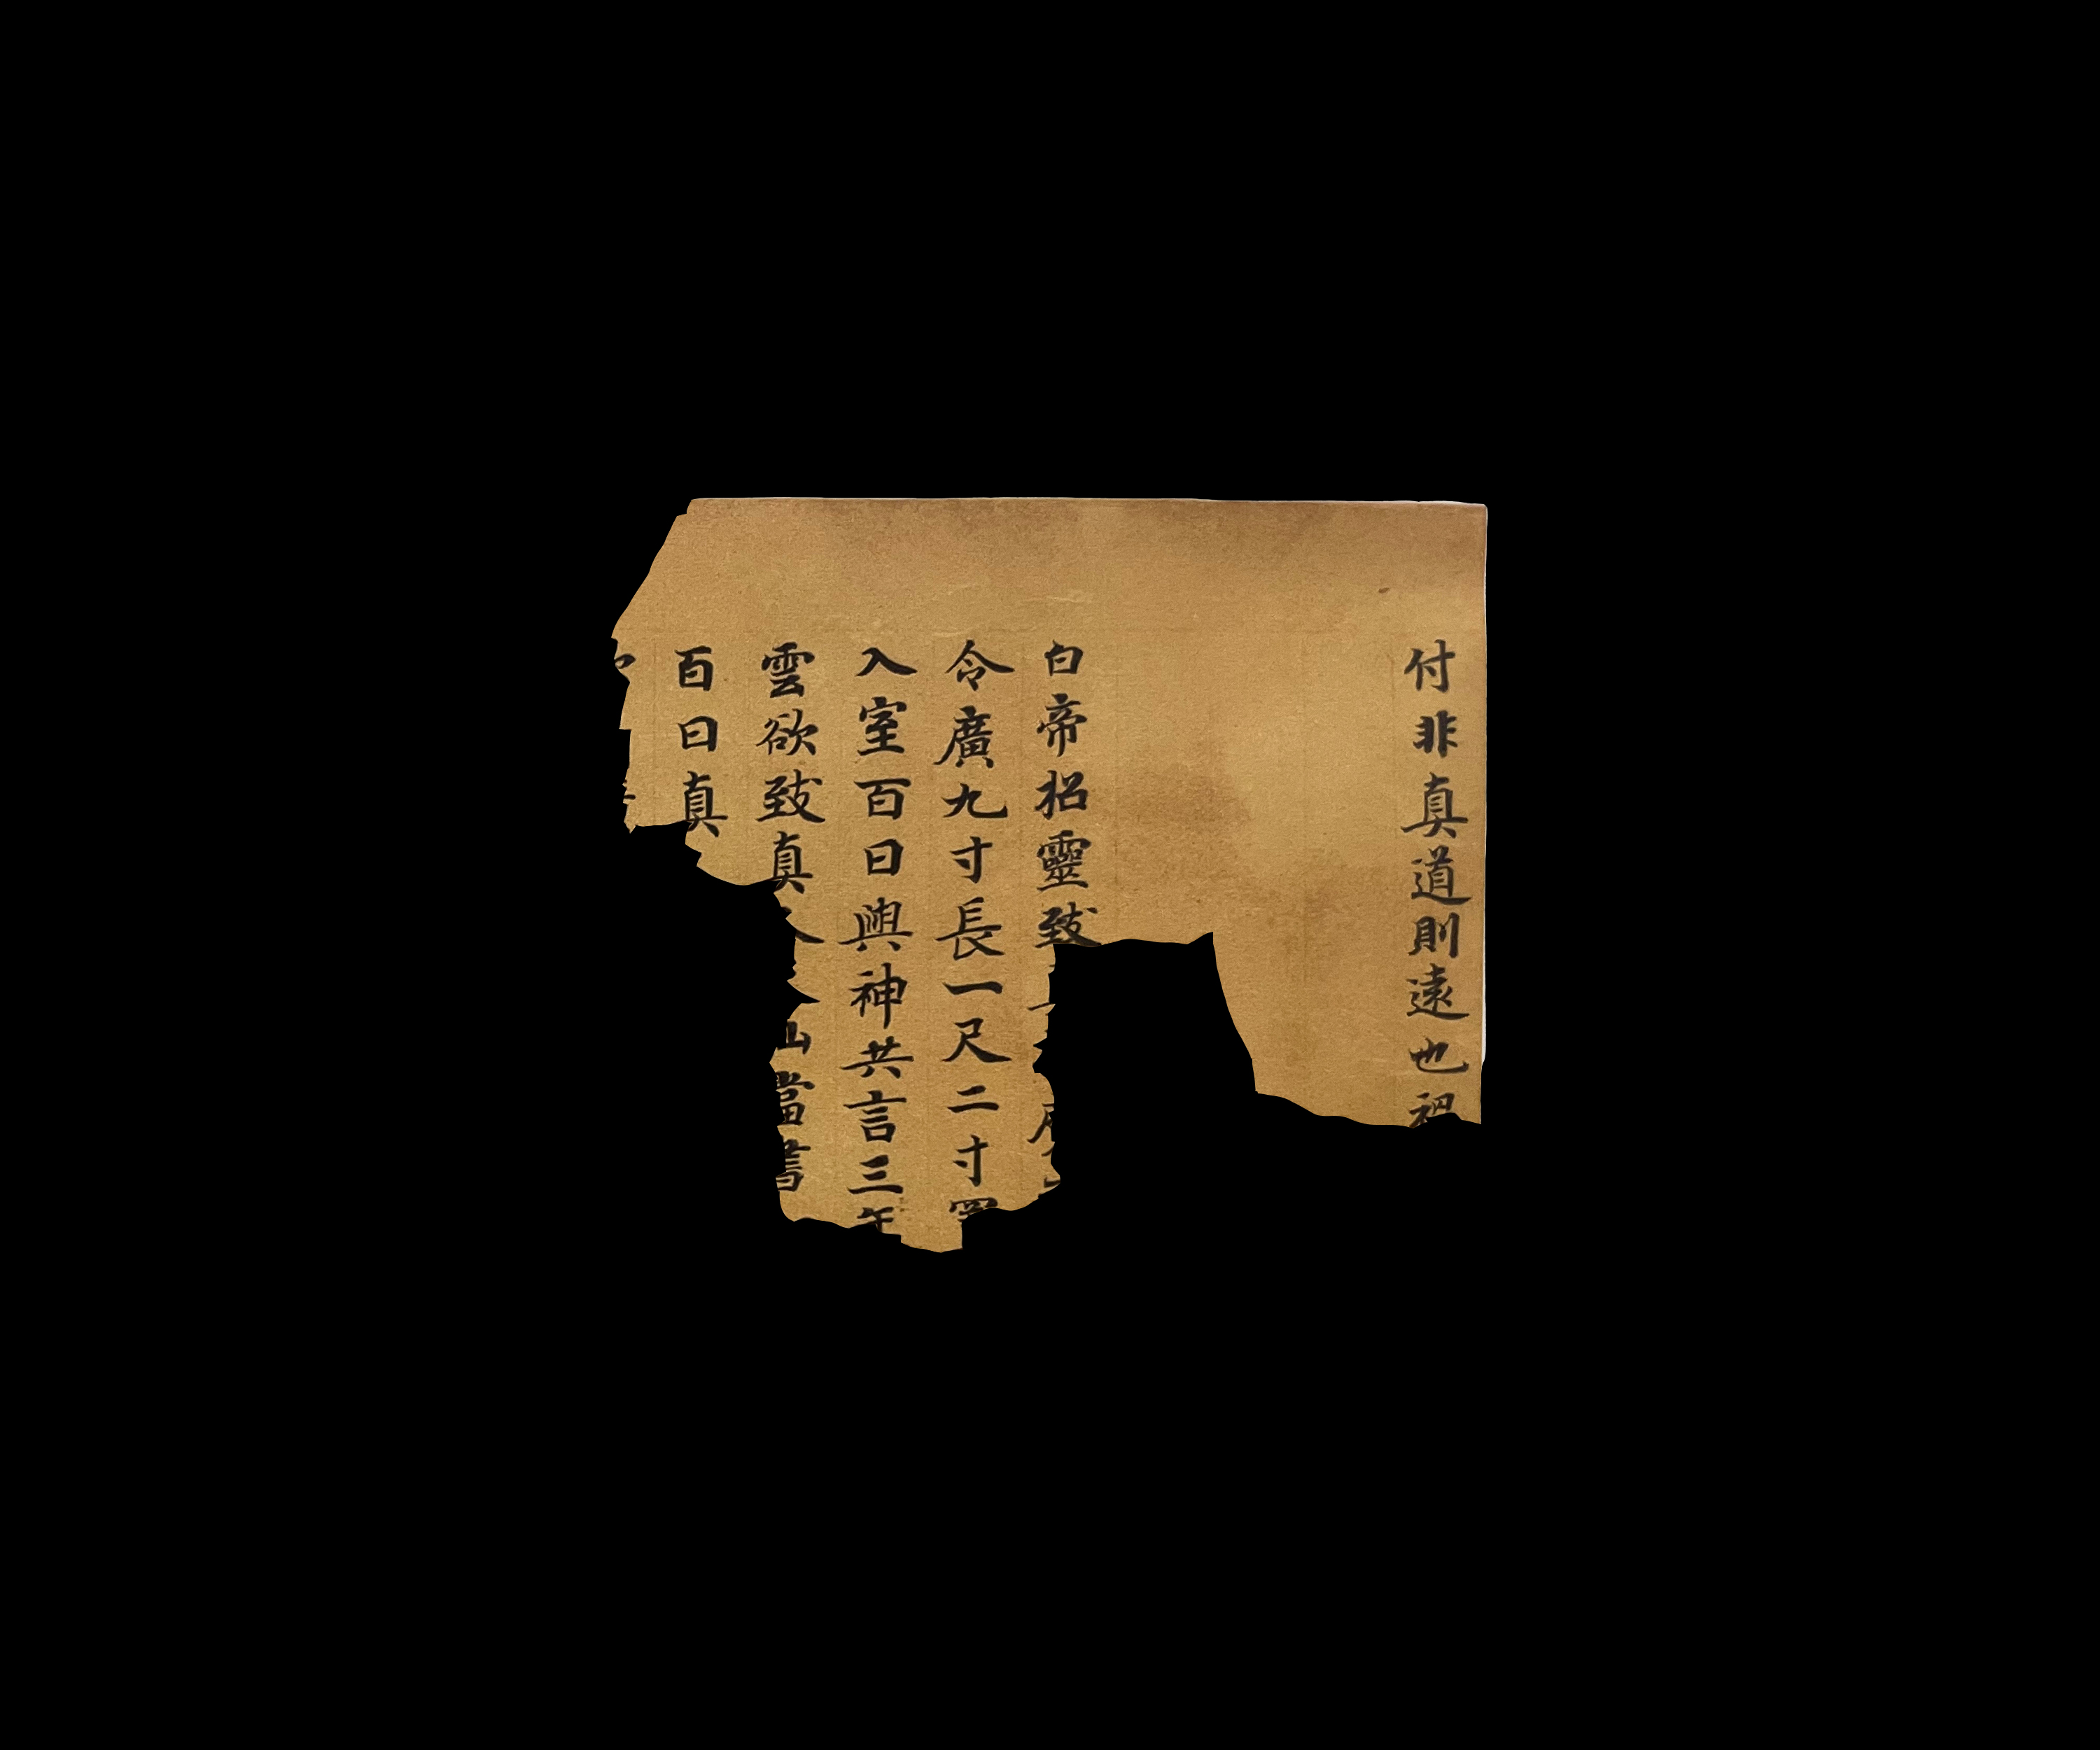 付非真道則遠也
白帝招靈致
令廣九寸長一尺二寸
入室百日與神共言三年
雲欲致真人山當書
百日真